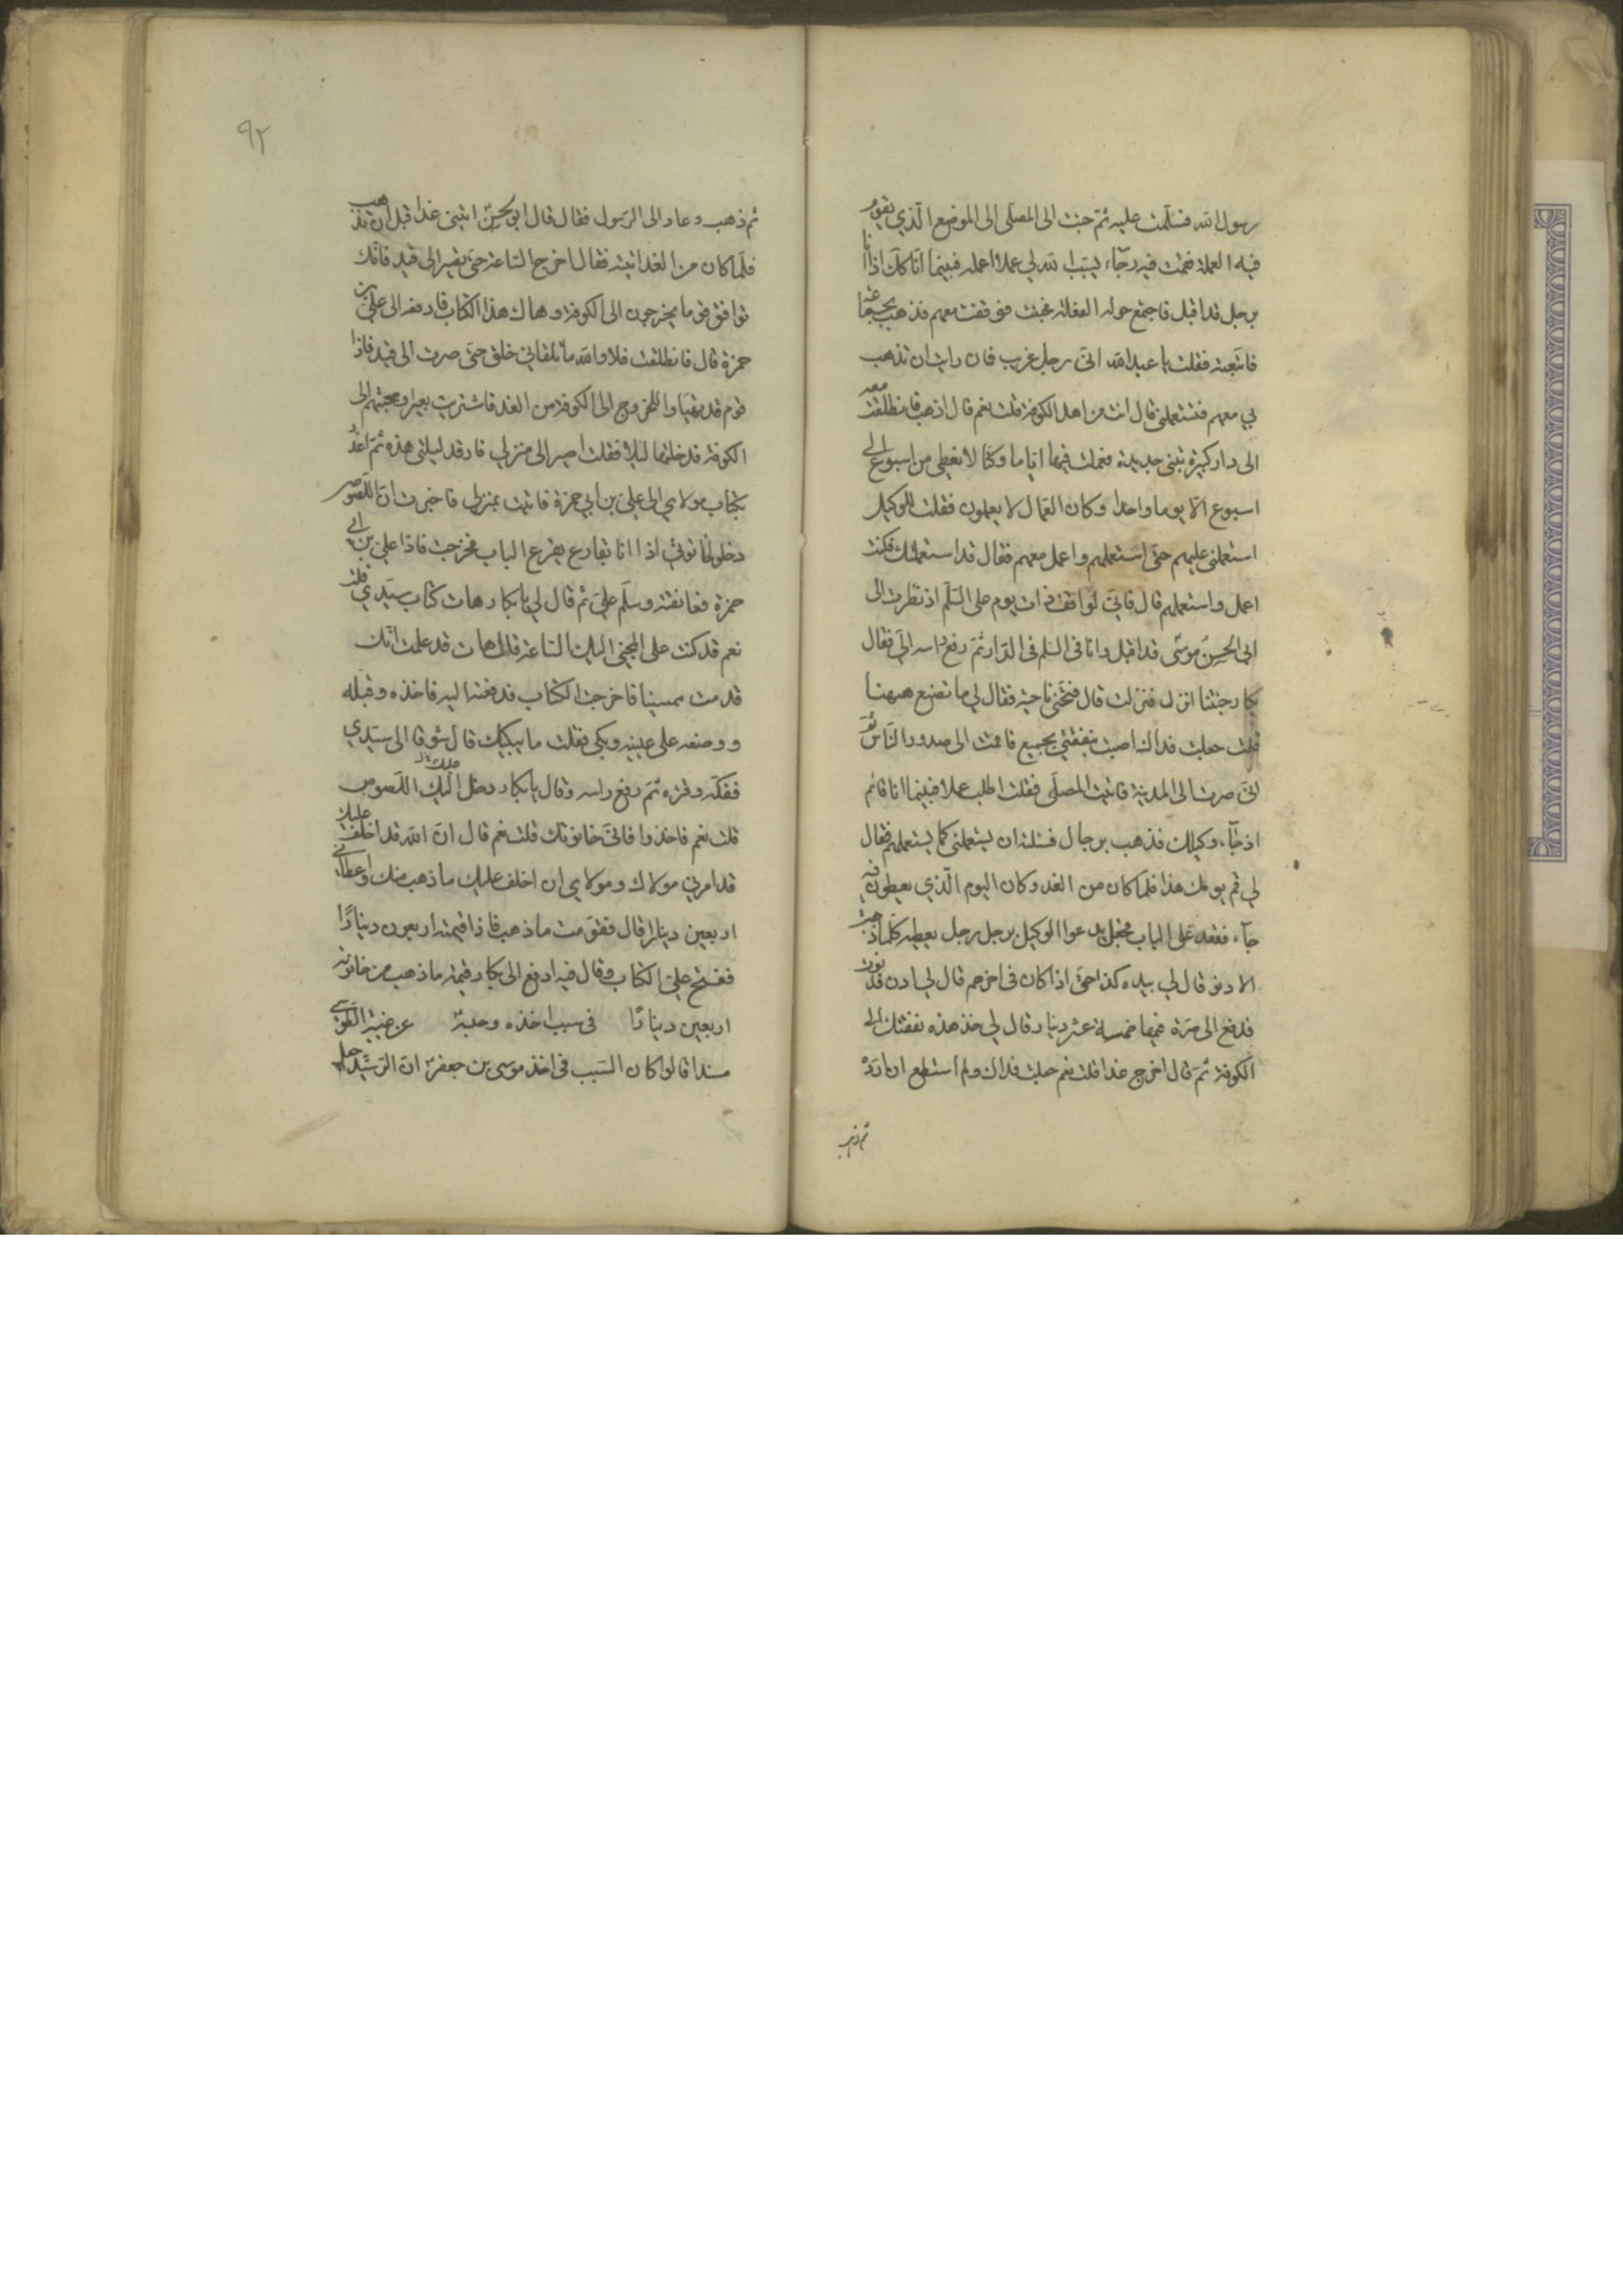 رسول الله فسلمت عليه ثم جئت الى المصلى الى الموضع الذي يقوم
فيه العملة فقمت فيه رجاء ان يسبب الله لي عملا اعمله فبينما انا كذلك اذا انا
برجل قد اقبل فاجتمع حوله الفعلة فجئت فوقفت معهم فذهب بجماعة
فاتبعته فقلت يا عبد الله اني رجل غريب فان رايت ان تذهب
بي معهم فتستعملني قال انت من اهل الكوفة قلت نعم قال اذهب فانطلقت معه
الى دار كبيرة تبنى جديدة فعملت فيها اياما وكنا لا نعطى من اسبوع الى
اسبوع الا يوما واحدا وكان العمال لا يعملون فقلت للوكيل
استعملني عليهم حتى استعملهم واعمل معهم فقال قد استعملتك فكنت
اعمل واستعملهم قال فاني لواقف ذات يوم على السلم اذ نظرت الى
ابي الحسن موسى قد اقبل وانا في السلم في الدار ثم رفع راسه الي فقال
بكار جئتنا انزل فنزلت قال فتنحى ناحية فقال لي ما تصنع ههنا
قلت جعلت فداك اصبت بنفقتي بجميع فاقمت الى صدور الناس ثم
اني صرت الى المدينة فاتيت المصلى فقلت اطلب عملا فبينما انا قائم
اذ جاء وكيلك فذهب برجال فسئلته ان يستعملني كما يستعملهم فقال
لي قم يومك هذا فلما كان من الغد وكان اليوم الذي يعطون فيه
جاء فقعد على الباب فجعل يدعو الوكيل برجل رجل يعطيه كلما ذهبت
لادنو قال لي بيده كذا حتى اذا كان في اخرهم قال لي ادن فدنوت
فدفع الي صرة فيها خمسة عشر دينار قال لي خذ هذه نفقتك الى
الكوفة ثم قال اخرج غدا قلت نعم جعلت فداك ولم استطع ان ارده
ثم ذهب
٩٢
ثم ذهب وعاد الي الرسول فقال قال ابو الحسن ائتني غدا قبل ان تذهب
فلما كان من الغد اتيته فقال اخرج الساعة حتى تصير الى فيد فانك
توافق قوما يخرجون الى الكوفة وهاك هذا الكتاب فادفعه الى علي بن
حمزة قال فانطلقت فلا والله ما تلقاني خلق حتى صرت الى فيد فاذا
قوم قد تهياوا للخروج الى الكوفة من الغد فاشتريت بعيرا وصحبتهم الى
الكوفة فدخلتها ليلا فقلت اصير الى منزلي فارقد ليلتي هذه ثم اغدو
بكتاب مولاي الى علي بن ابي حمزة فاتيت منزلي فاخبرت ان اللصوص
دخلوا حانوتي اذا انا بقارع يقرع الباب فخرجت فاذا علي بن ابي
حمزة فعانقته وسلم علي ثم قال لي يا بكار هات كتاب سيدي قلت
نعم قد كنت على المجئ اليك الساعة قال هات قد علمت انك
قدمت ممسيا فاخرجت الكتاب فدفعته اليه فاخذه وقبله
ووضعه على عينيه وبكى فقلت ما يبكيك قال شوقا الى سيدي
ففكه وقراه ثم رفع راسه وقال يا بكار دخل اليك اللصوص
قلت نعم فاخذوا ما في حانوتك قلت نعم قال ان الله قد اخلف عليك
قد امرني مولاك ومولاي ان اخلف عليك ما ذهب منك واعطاني
اربعين دينارا قال فقومت ما ذهب فاذا قيمته اربعون دينارا
ففتح علي الكتاب وقال فيه ادفع الى بكار قيمة ما ذهب من حانوته
اربعين دينارا في سبب اخذه وحبسه عن غيبة الطوسي
مسندا قالوا كان السبب في اخذ موسى بن جعفر ان الرشيد جعل